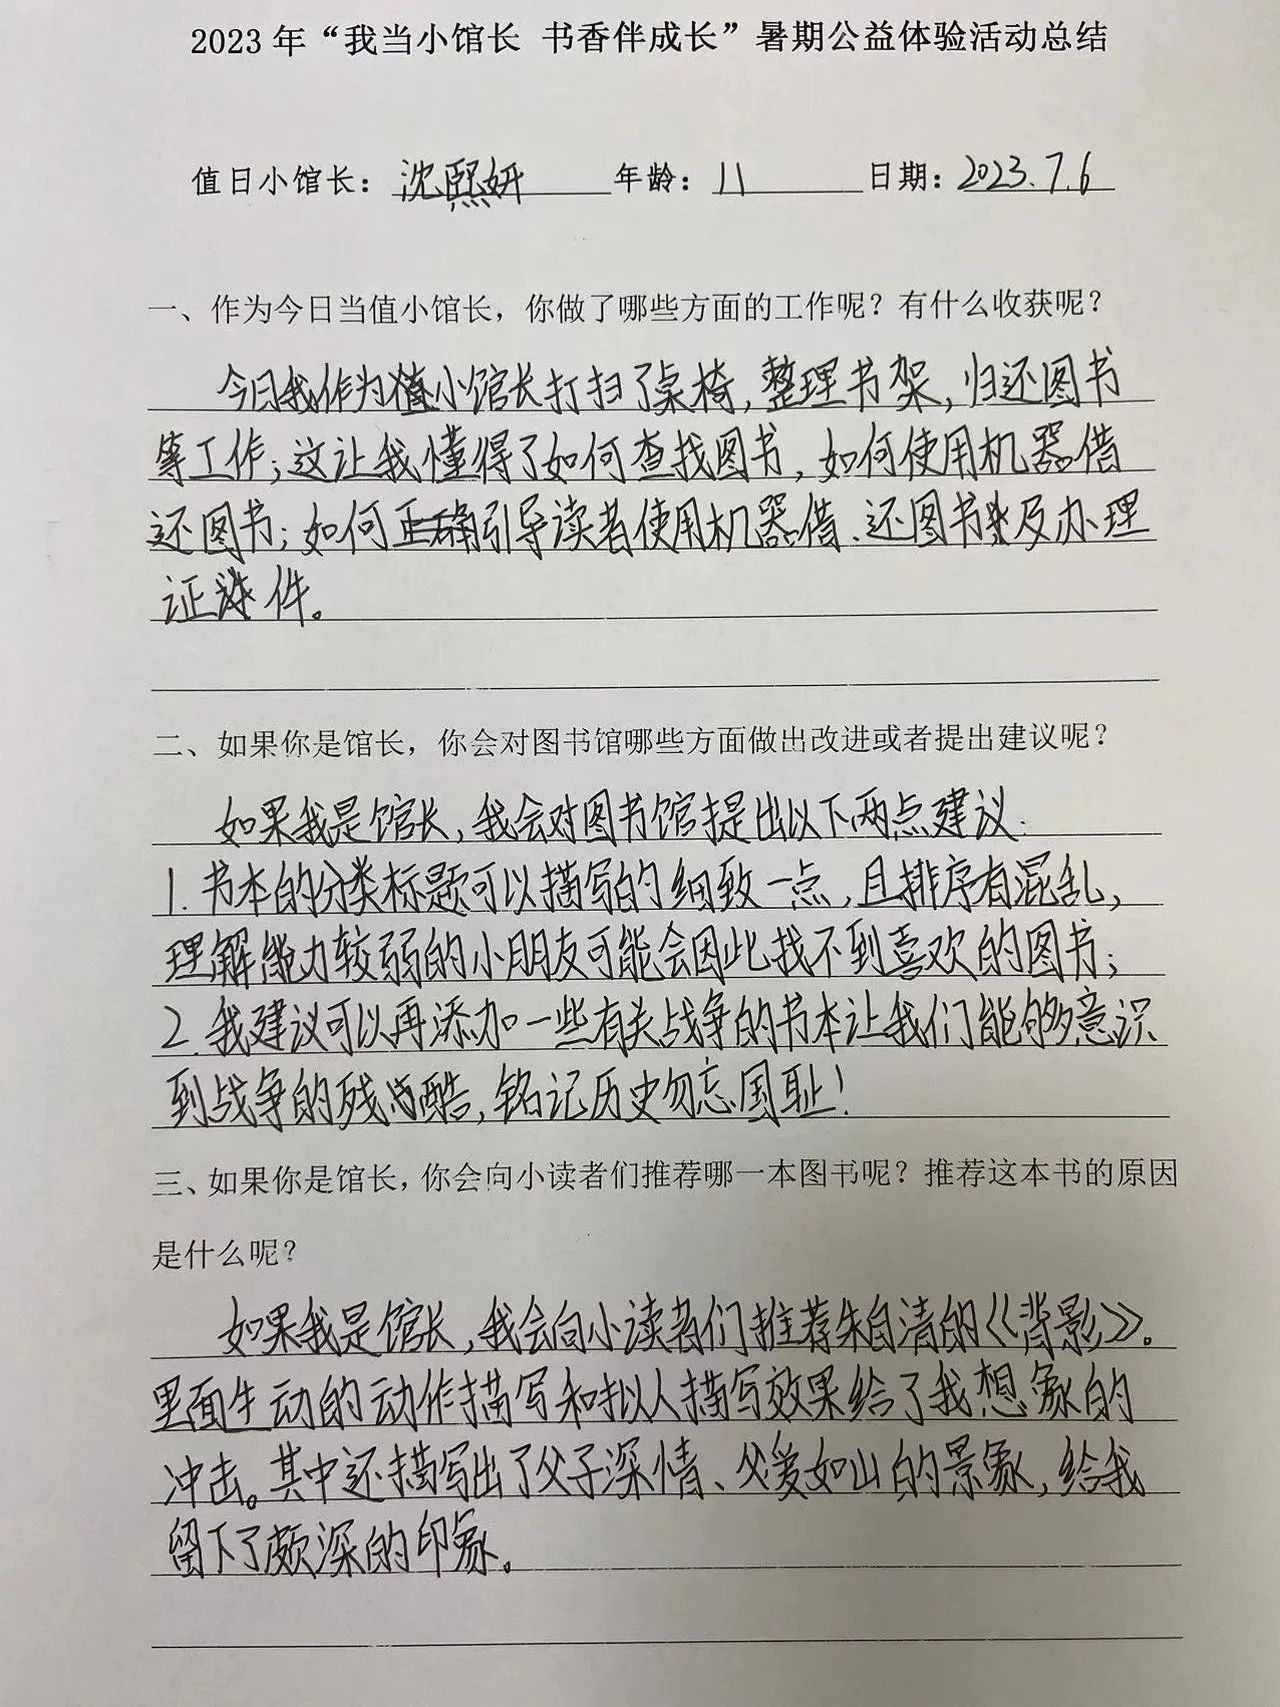 2023年“我当小馆长 书香伴成长”暑期公益体验活动总结
值日小馆长：沈熙妍 年龄：11 日期：2023.7.6
一、作为今日当值小馆长，你做了哪些方面的工作呢？有什么收获呢？
今日我作为值小馆长打扫了桌椅，整理书架，归还图书
等工作；这让我懂得了如何查找图书，如何使用机器借
还图书；如何正确引导读者使用机器借、还图书以及办理
证件。
二、如果你是馆长，你会对图书馆哪些方面做出改进或者提出建议呢？
如果我是馆长，我会对图书馆提出以下两点建议：
1.书本的分类标题可以描写的细致一点，且排序有混乱，
理解能力较弱的小朋友可能会因此找不到喜欢的图书；
2.我建议可以再添加一些有关战争的书本让我们能够意识
到战争的残酷，铭记历史勿忘国耻！
三、如果你是馆长，你会向小读者们推荐哪一本图书呢？推荐这本书的原因
是什么呢？
如果我是馆长，我会向小读者们推荐朱自清的《背影》。
里面生动的动作描写和拟人描写效果给了我想象的
冲击。其中还描写出了父子深情、父爱如山的景象，给我
留下了颇深的印象。